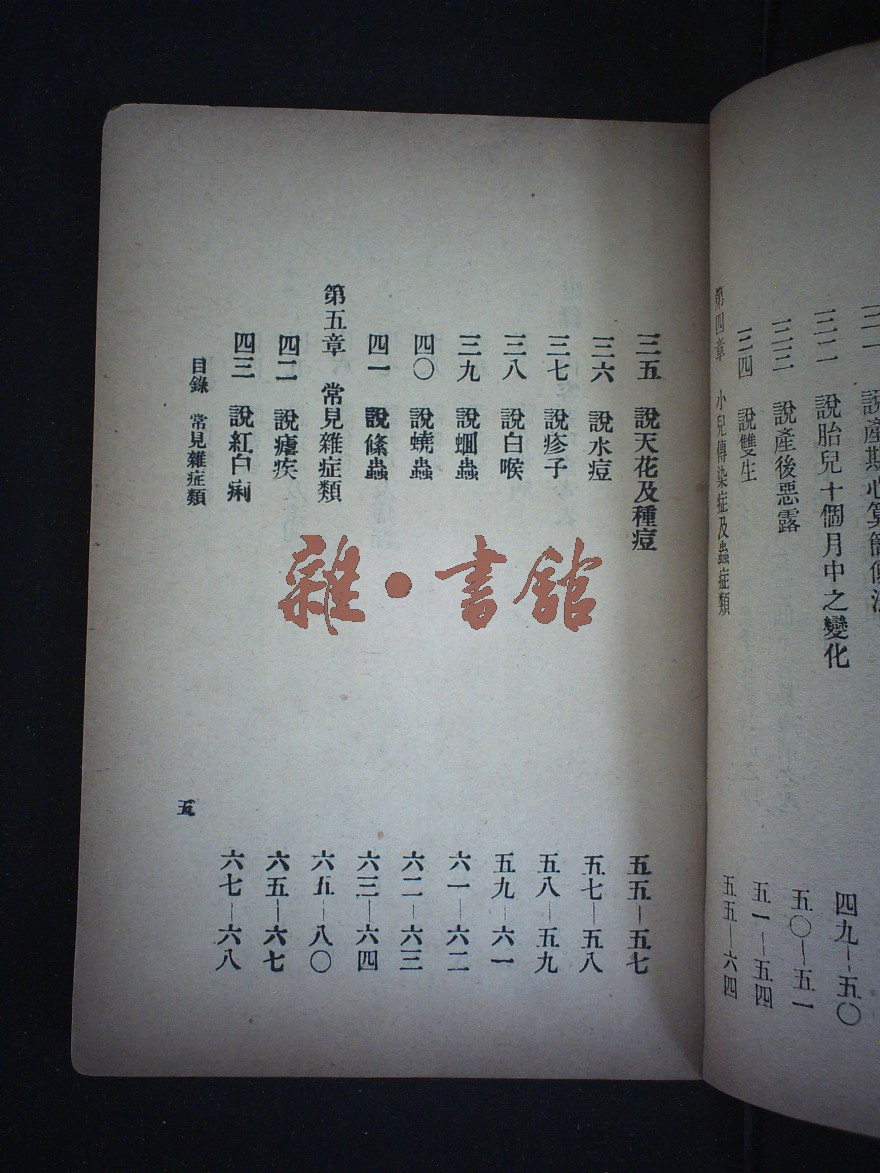 說產期心算簡便法
三二 說胎兒十個月中之變化
四九—五〇
三三 說產後惡露
五〇—五一
三四 說雙生
五一—五四
第四章 小兒傳染症及蟲症類
五五—六四
三五 說天花及種痘
五五—五七
三六 說水痘
五七—五八
三七 說疹子
五八—五九
三八 說白喉
五九—六一
三九 說蛔蟲
六一—六二
四〇 說蟯蟲
六二—六三
四一 說絛蟲
六三—六四
第五章 常見雜症類
六五—八〇
四二 說瘧疾
六五—六七
四三 說紅白痢
六七—六八
目錄 常見雜症類
五
雜·書館